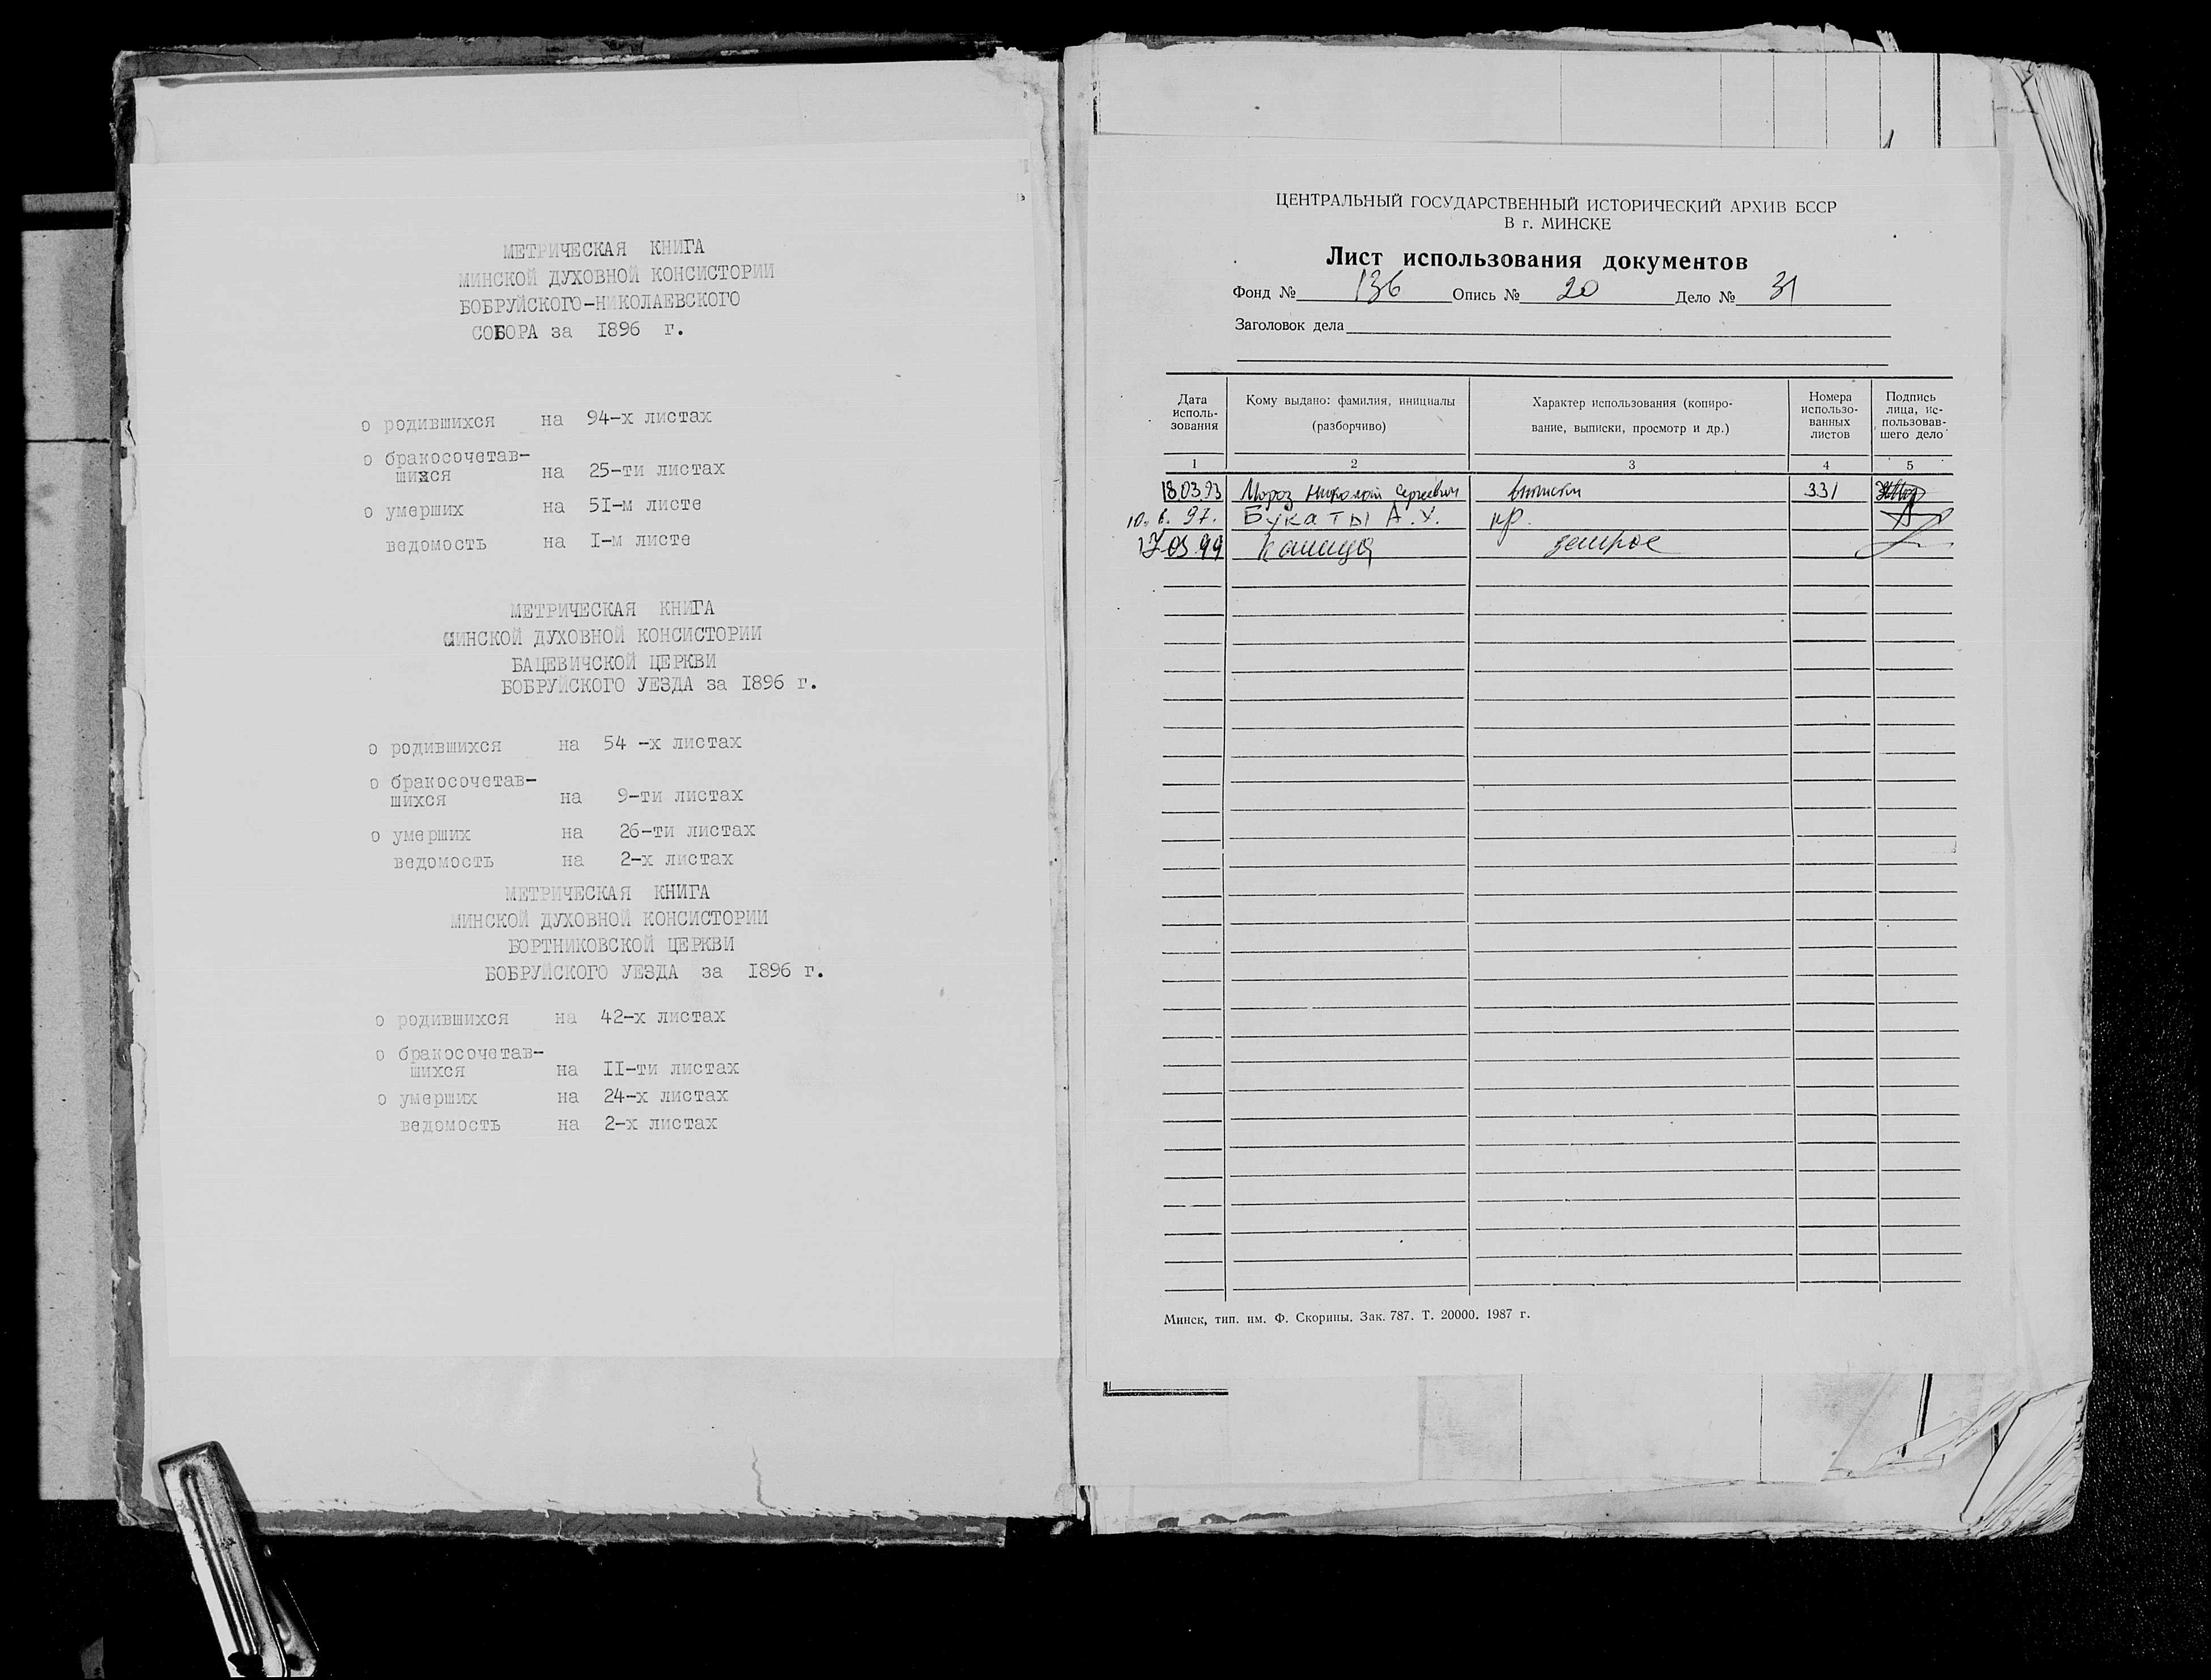 МЕТРИЧЕСКАЯ КНИГА
МИНСКОЙ ДУХОВНОЙ КОНСИСТОРИИ
БОБРУЙСКОГО-НИКОЛАЕВСКОГО
СОБОРА за 1896 г.
о родившихся на 94-х листах
о бракосочетав-
шихся на 25-ти листах
о умерших на 5I-м листе
ведомость на I-м листе
МЕТРИЧЕСКАЯ КНИГА
МИНСКОЙ ДУХОВНОЙ КОНСИСТОРИИ
БАЦЕВИЧСКОЙ ЦЕРКВИ
БОБРУЙСКОГО УЕЗДА за I896 г.
о родившихся на 54 -х листах
о бракосочетав-
шихся на 9-ти листах
о умерших на 26-ти листах
ведомость на 2-х листах
МЕТРИЧЕСКАЯ КНИГА
МИНСКОЙ ДУХОВНОЙ КОНСИСТОРИИ
БОРТНИКОВСКОЙ ЦЕРКВИ
БОБРУЙСКОГО УЕЗДА за I896 г.
о родившихся на 42-х листах
о бракосочетав-
шихся на II-ти листах
о умерших на 24-х листах
ведомость на 2-х листах
ЦЕНТРАЛЬНЫЙ ГОСУДАРСТВЕННЫЙ ИСТОРИЧЕСКИЙ АРХИВ БССР
В г. МИНСКЕ
Лист использования документов
Фонд № 136 Опись № 20 Дело № 31
Заголовок дела
Дата исполь-зования
Кому выдано: фамилия, инициалы (разборчиво)
Характер использования (копиро-вание, выписки, просмотр и др.)
Номера использо-ванных листов
Подпись лица, ис-пользовав-шего дело
1 2 3 4 5
18.03.93 Мороз Николай Сергеевич выписки 331
10. 6. 97. Букаты А.У. пр.
17.03.99 запрос
Минск, тип. им. Ф. Скорины. Зак. 787. Т. 20000. 1987 г.